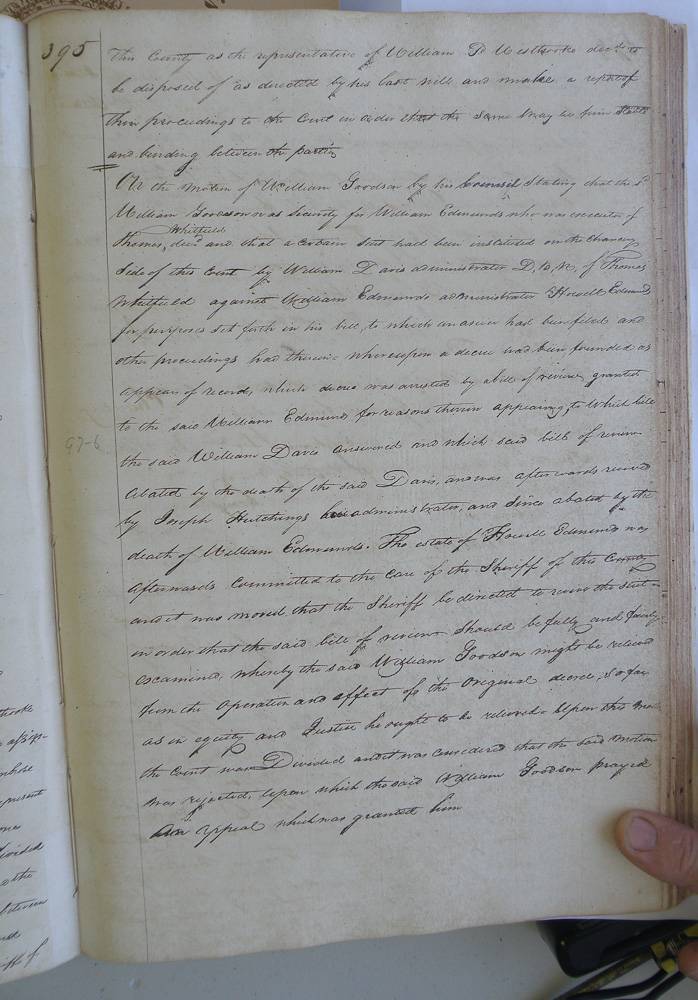 395
This County as the representative of William P Westbrooke decd. to
be disposed of as directed by his last will and make a report of
their proceedings to the Court in order that the same may be
and binding between the parties
On the motion of William Goodson by his Counsil Stating that the sd.
William Goodson was Security for William Edmunds who was executor of
Whitfield
Thomas, decd. and that a certain suit had been instituted on the Chancery
Side of this Court by William Davis administrator D, B, N, of Thomas
Whitfield against William Edmunds administrator Howell Edmunds
for purposes set forth in his bill, to which an answer had been filed and
other proceedings had therein whereupon a decree had been founded as
appears of record, which decree was arrested by a bill of review granted
to the said William Edmunds for reasons therein appearing, to which bill
the said William Davis answered and which said bill of review
97-6
abated by the death of the said Davis, and was afterwards revived
by Joseph Hutchings his administrator, and since abated by the
death of William Edmunds. The estate of Howell Edmunds was
afterwards committed to the care of the Sheriff of this County
and it was moved that the Sheriff be directed to revive the suit
in order that the said bill of review should be fully and fairly
examined, whereby the said William Goodson might be relieved
from the operation and effect of the Original decree, so far
as in equity and Justice he ought to be relieved Upon this
the Court was Divided and it was considered that the said motion
was rejected, Upon which the said William Goodson prayed
an appeal which was granted him